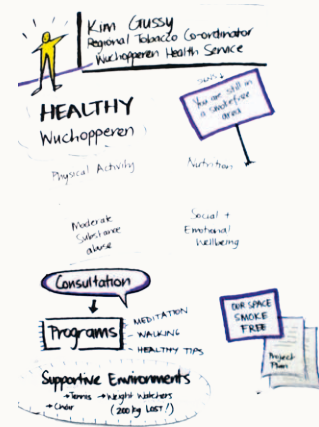 Kim Gussy
Regional Tobacco Co-ordinator
Wuchopperen Health Service
HEALTHY
Wuchopperen
SIGNS ↓
You are still in
a smokefree
area
Physical Activity
Nutrition
Moderate
Substance
abuse
Social +
Emotional
Wellbeing
Consultation
Programs
- MEDITATION
- WALKING
- HEALTHY TIPS
OUR SPACE
SMOKE
FREE
Project
Plan
Supportive Environments
→ Tennis → Weight Watchers
→ Choir (200 kg LOST!)